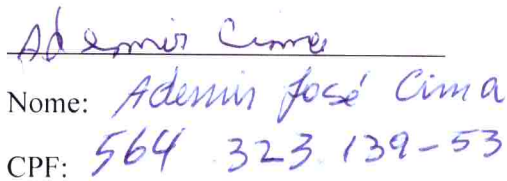 Ademir Cima
Nome: Ademir José Cima
CPF: 564 323 139-53